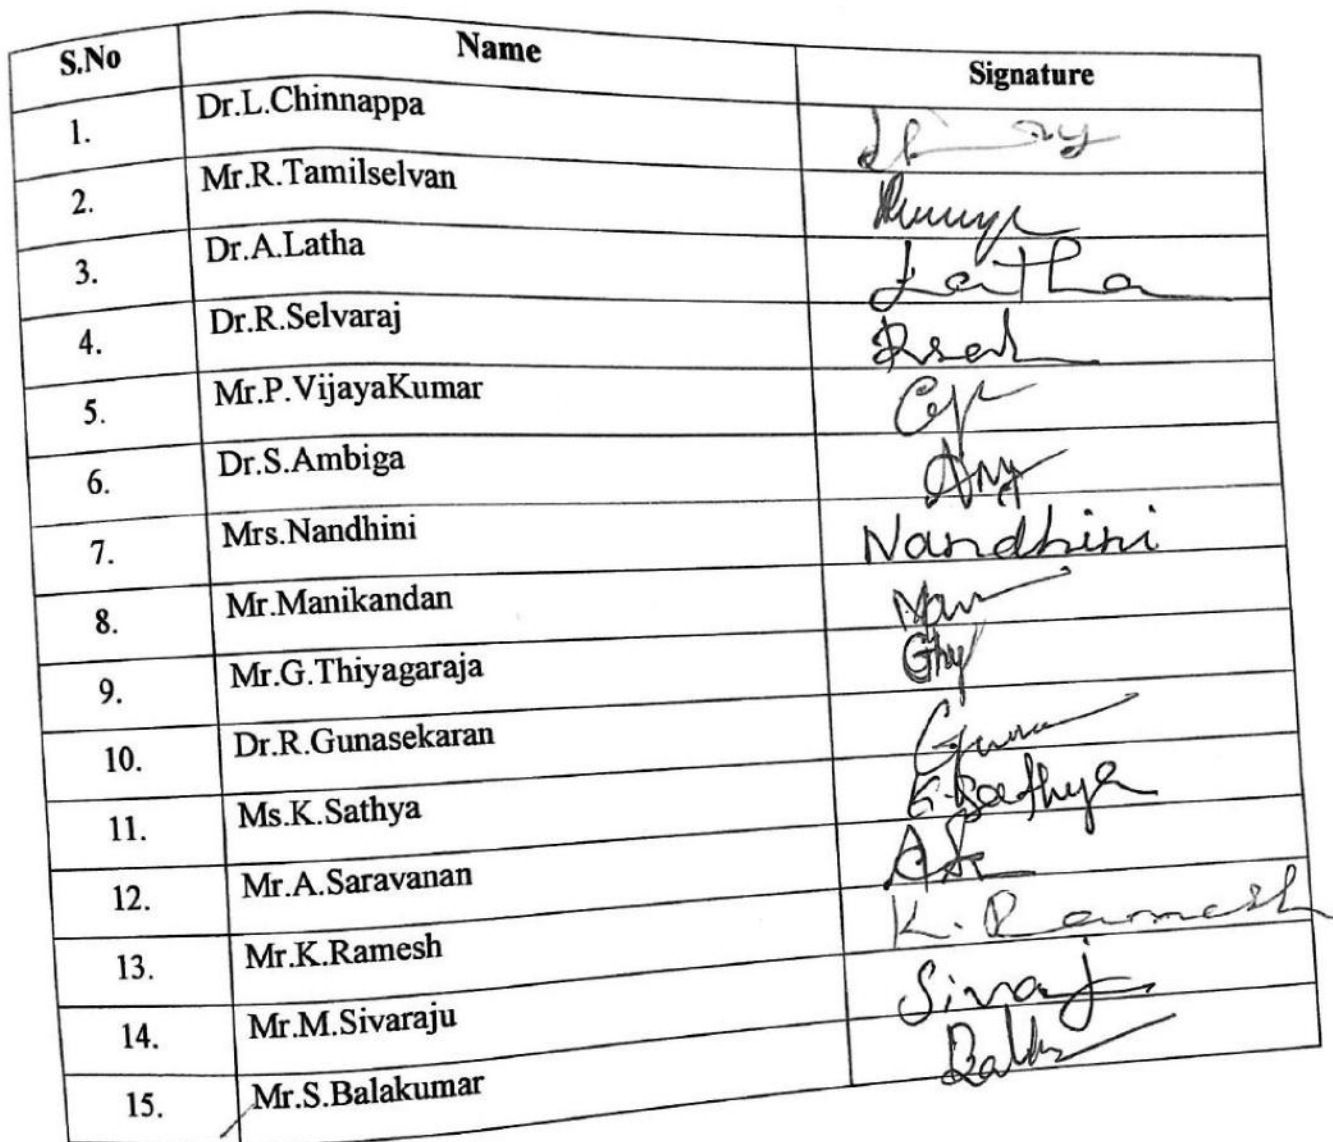 S.No Name Signature
1. Dr.L.Chinnappa
2. Mr.R.Tamilselvan
3. Dr.A.Latha Latha
4. Dr.R.Selvaraj
5. Mr.P.VijayaKumar
6. Dr.S.Ambiga
7. Mrs.Nandhini Nandhini
8. Mr.Manikandan
9. Mr.G.Thiyagaraja
10. Dr.R.Gunasekaran
11. Ms.K.Sathya
12. Mr.A.Saravanan
13. Mr.K.Ramesh K. Ramesh
14. Mr.M.Sivaraju Sivaraj
15. Mr.S.Balakumar